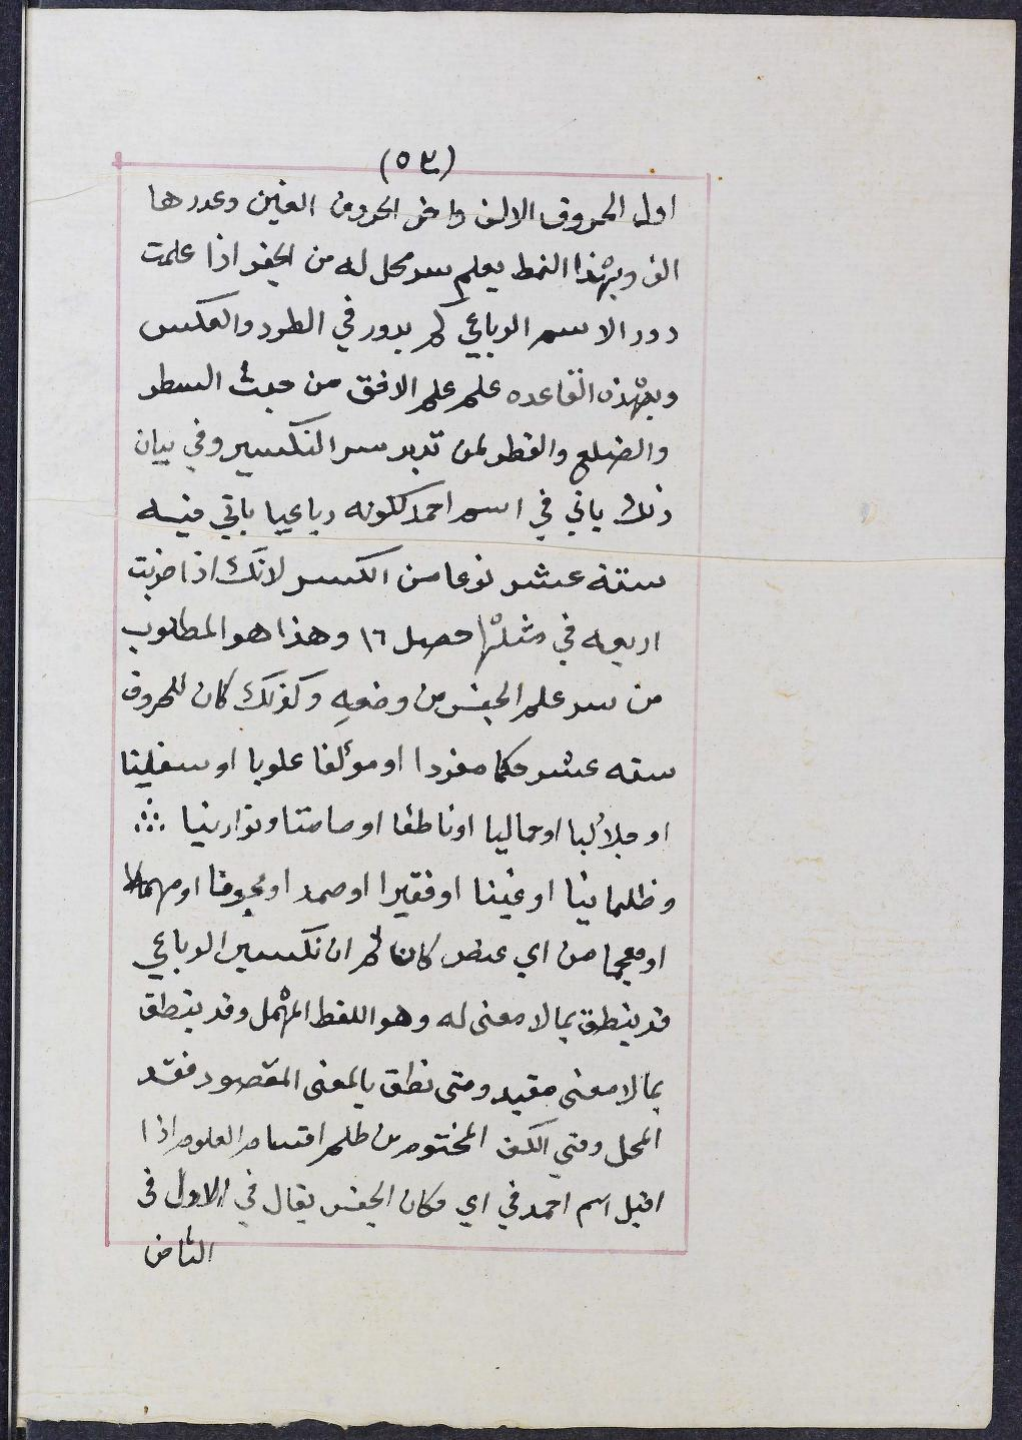 (٥٣)
اول الحروف الالف واخر الحروف الغين وعددها
الف وبهذا النمط يعلم سر محل له من الجفر اذا علمت
دور الاسم الرباعي كم يدور في الطرد والعكس
وبهذه القاعده علم علم الافق من حيث السطر
والضلع والقطر لمن تدبر سر التكسير وفي بيان
ذلك ياتي في اسم احمد لكونه رباعيا ياتي فيه
ستة عشر نوعا من الكسر لانك اذا ضربت
اربعه في مثلها حصل ١٦ وهذا هو المطلوب
من سر علم الجفر من وضعه وكذلك كان للحروف
سته عشر حكما مفردا او مؤلفا علويا او سفليا
او جلاليا او جماليا او ناطقا او صامتا ونورانيا
وظلمانيا او غنيا او فقيرا او صمد او مجوفا او مهملا
او معجما من اي عنصر كان ثم ان تكسير الرباعي
قد ينطق بما لا معنى له وهو اللفظ المهمل وقد ينطق
بما لا معنى مقيد ومتى نطق بالمعنى المقصود فقد
المحل وفي الكف المختوم من طلم اقسام العلوم اذا
اقبل اسم احمد في اي مكان الجفر يقال في الاول في
الثامن